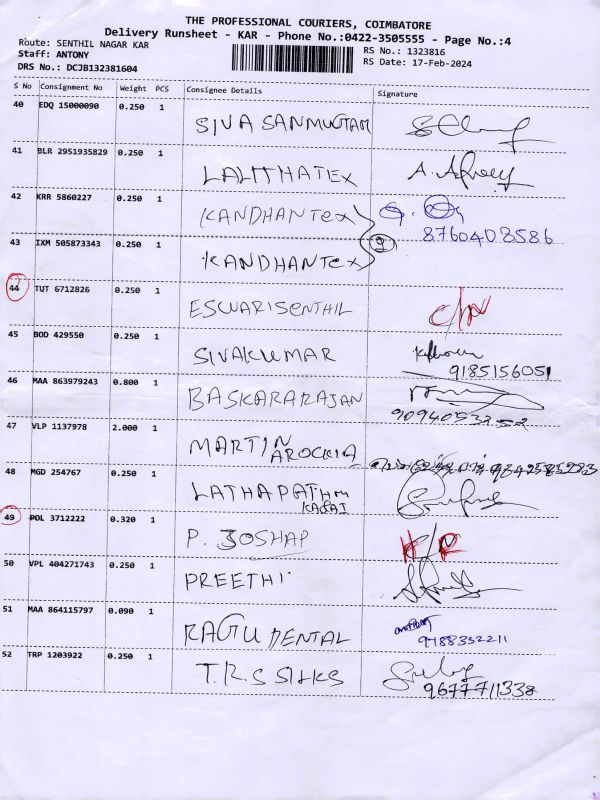 THE PROFESSIONAL COURIERS, COIMBATORE
Delivery Runsheet - KAR - Phone No.:0422-3505555 - Page No.:4
Route: SENTHIL NAGAR KAR
RS No.: 1323816
Staff: ANTONY
RS Date: 17-Feb-2024
DRS No.: DCJB132381604
S No Consignment No Weight PCS Consignee Details Signature
40 EDQ 15000090 0.250 1
SIVA SANMUGAM
41 BLR 2951935829 0.250 1
LALITHATEX
42 KRR 5860227 0.250 1
KANDHANTEX
8760408586
43 IXM 505873343 0.250 1
KANDHANTEX
2
44 TUT 6712826 0.250 1
ESWARISENTHIL
45 BOD 429550 0.250 1
SIVAKUMAR
9185156051
46 MAA 863979243 0.800 1
BASKARARAJAN
9094053252
47 VLP 1137978 2.000 1
MARTIN
AROCKIA
48 MGD 254767 0.250 1
LATHAPATHM
KADAI
49 POL 3712222 0.320 1
P. JOSHAP
50 VPL 404271743 0.250 1
PREETHI
51 MAA 864115797 0.090 1
RAGU DENTAL
9788352211
52 TRP 1203922 0.250 1
T.R.S SILKS
9677711338